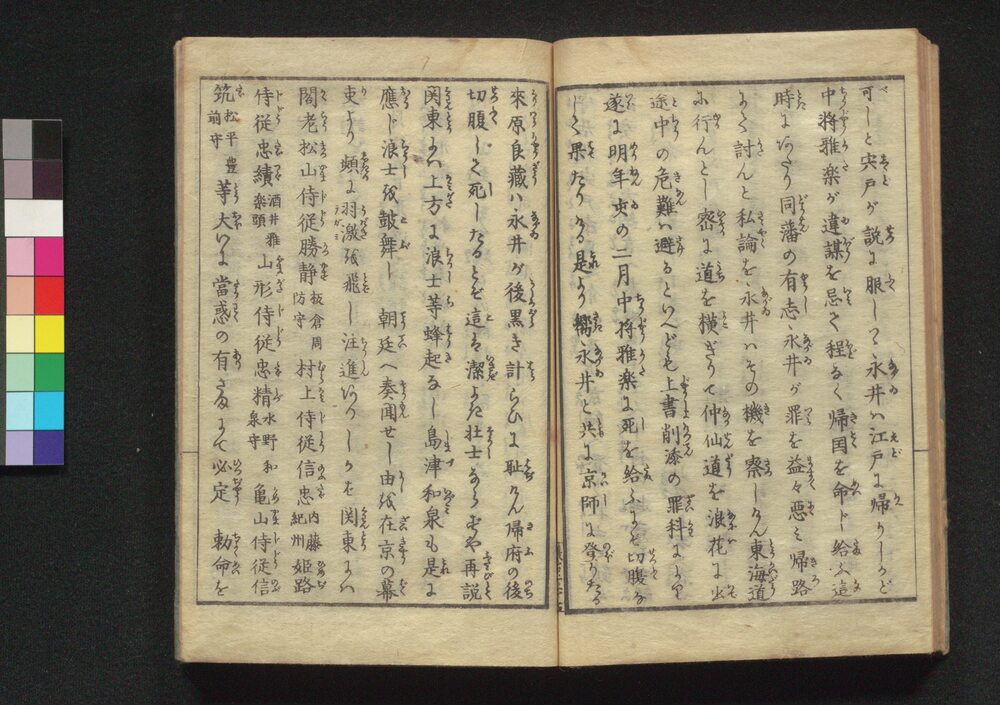 可しと宍戸が説に服して永井は江戸に帰りしかど
中将雅楽が違謀を忌て程なく帰国を命じ給ふ這
時にあたり同藩の有志永井が罪を益々悪ミ帰路
にて討んと私論を永井ハその機を察しけん東海道
に行んとし密に道を横ぎりて仲仙道を浪花に出
途中の危難ハ避るといへども上書削添の罪科により
遂に明年の二月中将雅楽に死を給ふにぞ切腹
して果たりける是より嚮永井と共に京師に登りたる
来原良蔵ハ永井が後黒き計らひに恥けん帰府の後
切腹して死したるとぞ這は潔よき壮士ならずや再説
関東にハ上方に浪士等蜂起なし島津和泉も是に
應じ浪士を皷舞し朝廷へ奏聞せし由を在京の幕
吏より頻に羽激を飛し注進ありしかば関東にハ
閣老松山侍従勝静板倉周防守村上侍従信忠内藤紀州姫路
侍従忠績酒井雅楽頭山形侍従忠精水野和泉守亀山侍従信
筑松平豊前守等大いに當惑の有さまにて必定勅命を